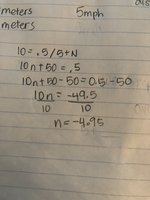 meters 5mph
meters
10 = .5/5+N
10n+50=.5
10n+50-50=0.5-50
10n = -49.5
10 10
n=-4.95